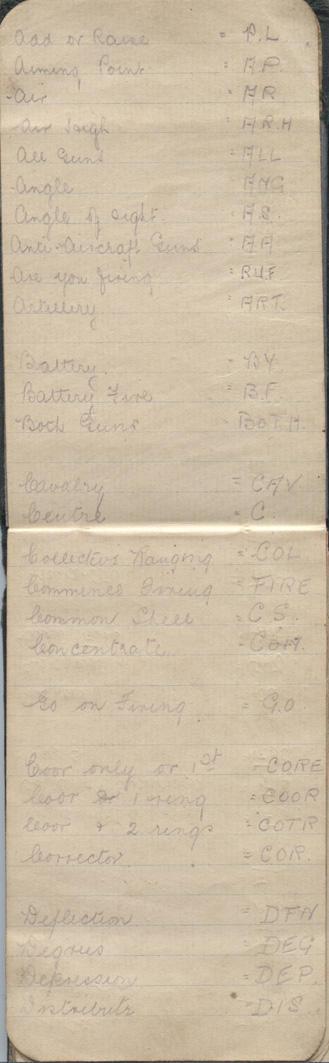 Add or Raise = P.L
Aiming Point = A.P.
Air = AR
Air High = AR.H
All Guns = ALL
Angle ANG
Angle of sight. = A.S.
Anti-Aircraft Guns = AA
Are you firing = RUF
Artillery = ART.
Battery. = BY
Battery Fire = B.F.
Both Guns - BOTH.
Cavalry = CAV
Centre = C.
Collective Ranging = COL
Commence Firing = FIRE
Common Shell = C S.
Concentrate =
Go on Firing = G.O.
Coor only or 1st = CORE
Coor & 1 ring = COOR
Coor & 2 rings = COTR
Corrector. = COR.
Deflection = DFN
Degrees = DEG
Depression = DEP.
Distribute = DIS.